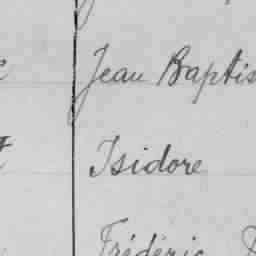 Jean Baptis
Isidore
Frédéric